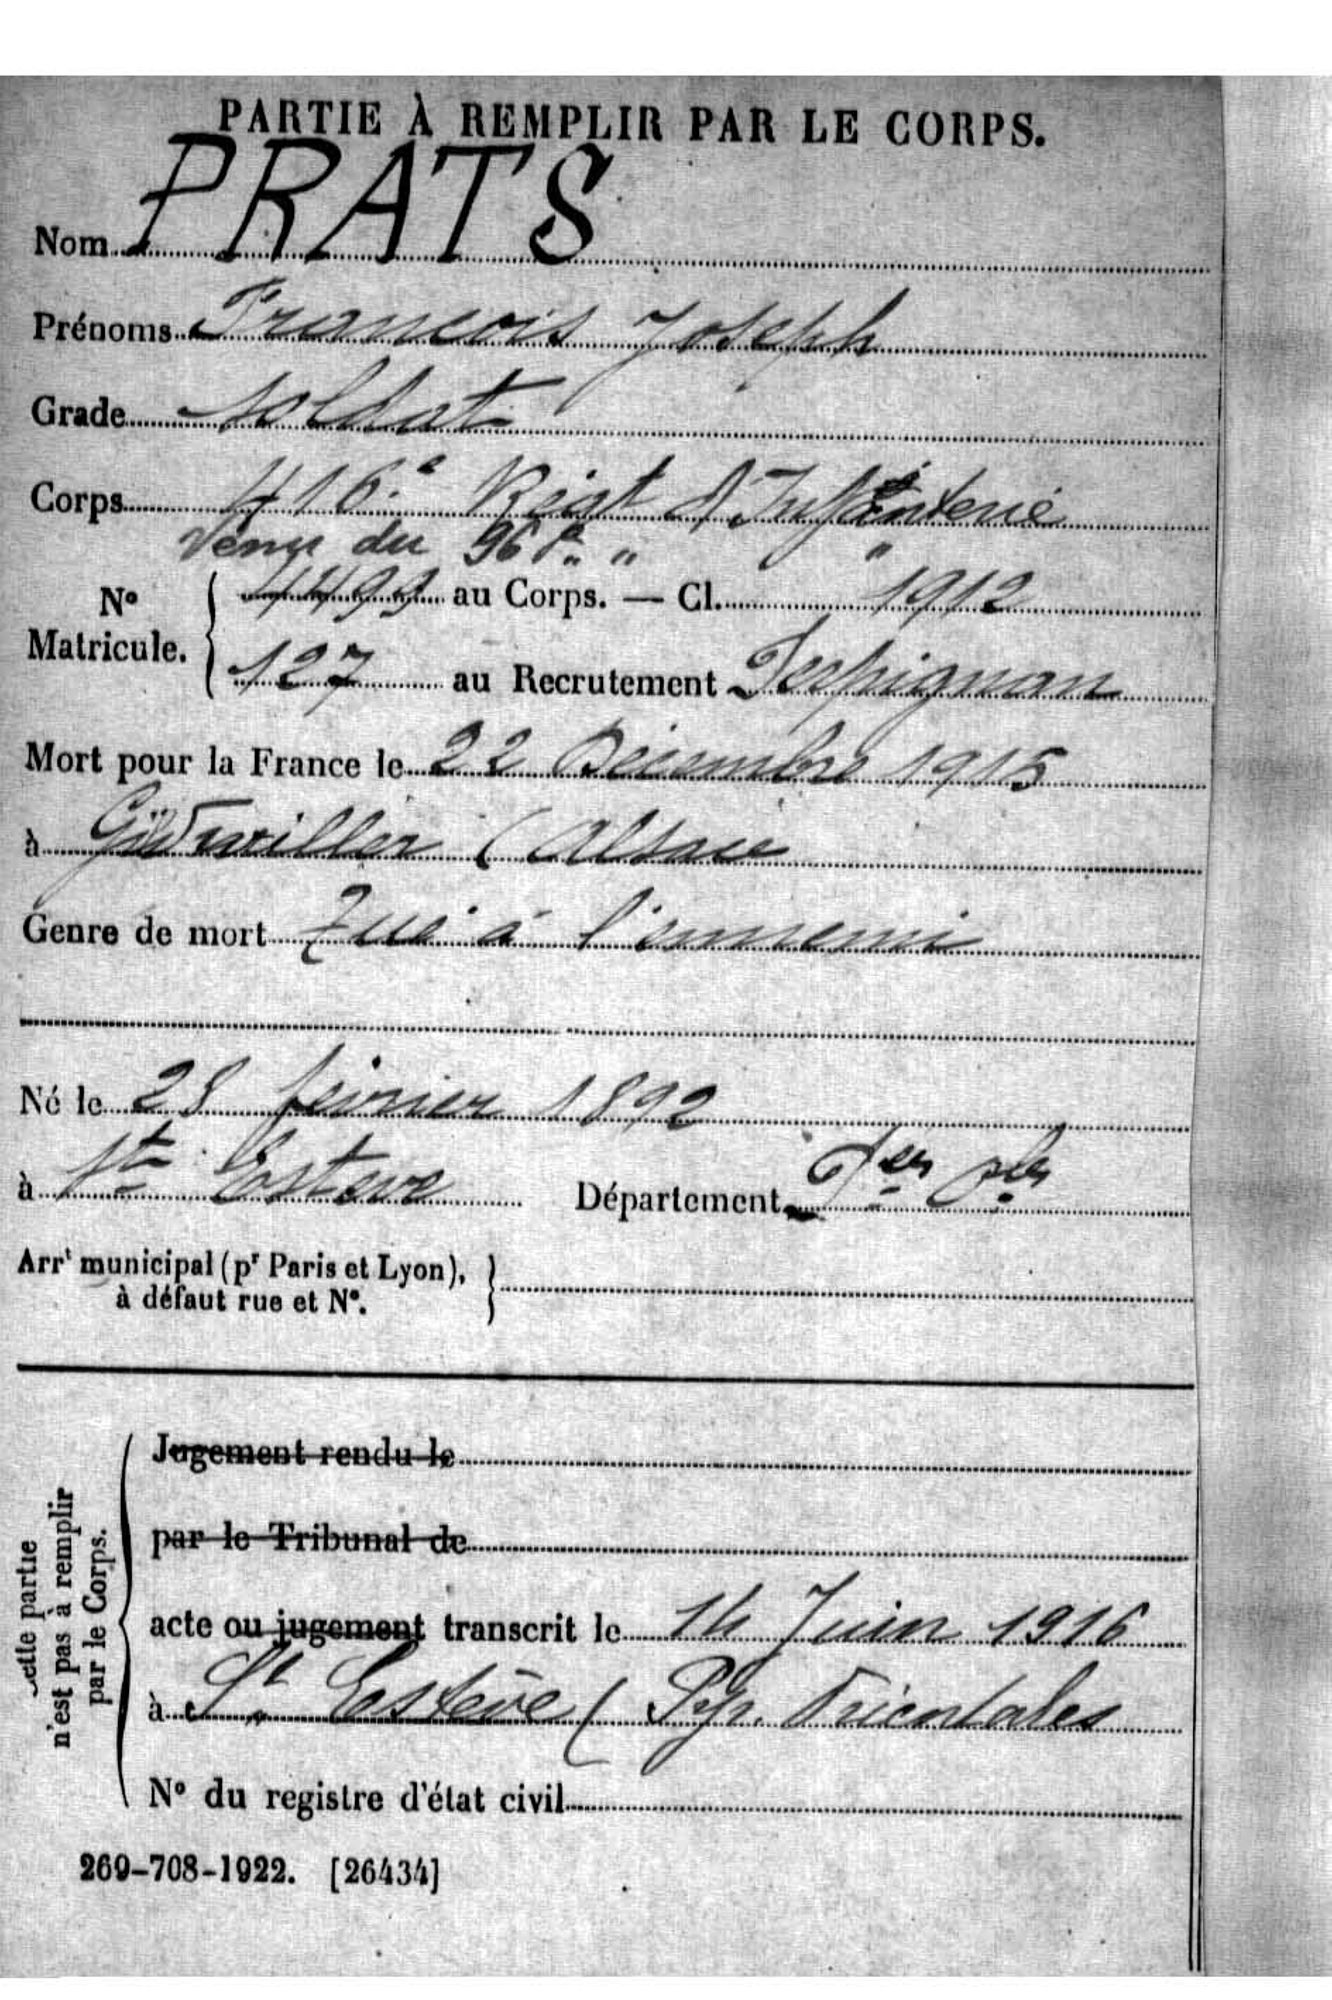 PARTIE À REMPLIR PAR LE CORPS.
Nom PRATS
Prénoms François Joseph
Grade soldat
Corps 416.e Régt d'Infanterie
Venu du 96 e. " "
No Matricule. 4499 au Corps. — Cl. 1912
127 au Recrutement Perpignan
Mort pour la France le 22 Décembre 1915
à (Alsace
Genre de mort Tué à l'ennemi
Né le 28 février 1892
à St Estève Département Pées Oles
Arrt municipal (pr Paris et Lyon),
à défaut rue et No.
Cette partie
n'est pas à remplir
par le Corps.
Jugement rendu le
par le Tribunal de
acte ou jugement transcrit le 14 Juin 1916
à St. Estève (Pyr. Orientales
No du registre d'état civil
269-708-1922. [26434]